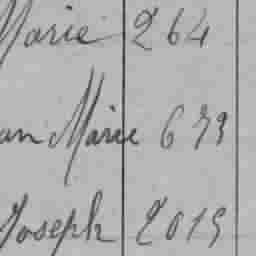 Marie 264
an Marie 679
Joseph 2019